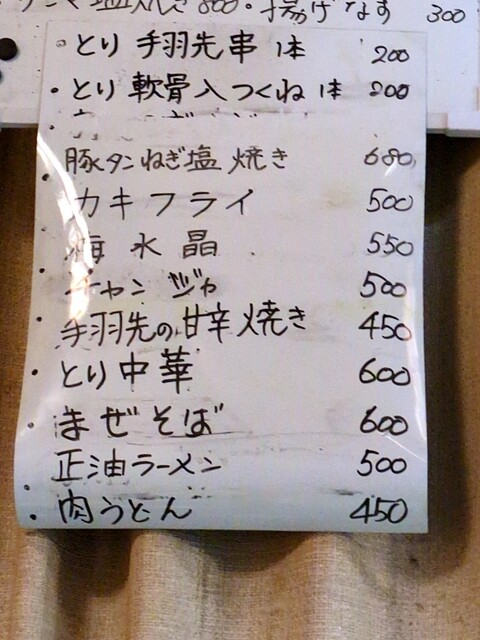 塩焼き 800・揚げなす 300
・とり 手羽先串 1本 200
・とり 軟骨入つくね 1本 200
豚タンねぎ塩焼き 680
カキフライ 500
梅水晶 550
チャンジャ 500
手羽先の甘辛焼き 450
・とり中華 600
・まぜそば 600
・正油ラーメン 500
・肉うどん 450